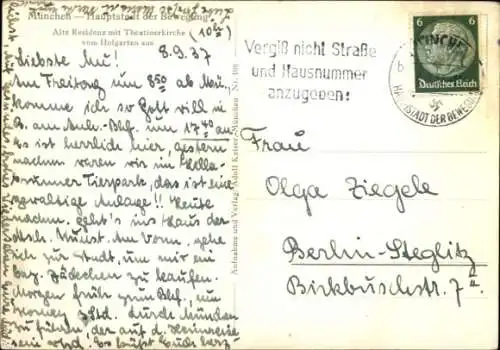 München — Hauptstadt der Bewegung
Alte Residenz mit Theatinerkirche
vom Hofgarten aus
(10h)
8.9.37
Liebste Mu!
Am Freitag um 8.50 ab Mü.
komme ich so Gott will in
B. am Anh. Bhf. um 17.40 an
Es ist herrlich hier, gestern
nachm. waren wir im Hella-
brunner Tierpark, das ist eine
gewaltige Anlage!! Heute
nachm. geht's ins Haus der
dtsch. Kunst. Am Vorm. gehe
ich zur Stadt, um mir ein
Bädechen zu kaufen.
Morgen früh zum Bhf., um
durch München
zu führen, der auf d. Heimreise
sein wird. Es küßt Euch herz-
Aufnahme und Verlag: Adolf Keiser, München Nr. 108
Vergiß nicht Straße
und Hausnummer
anzugeben!
MÜNCHEN
HAUPTSTADT DER BEWEGUNG
6 6
Deutsches Reich
Frau
Olga Ziegele
Berlin-Steglitz
Birkbuschstr. 7 II.